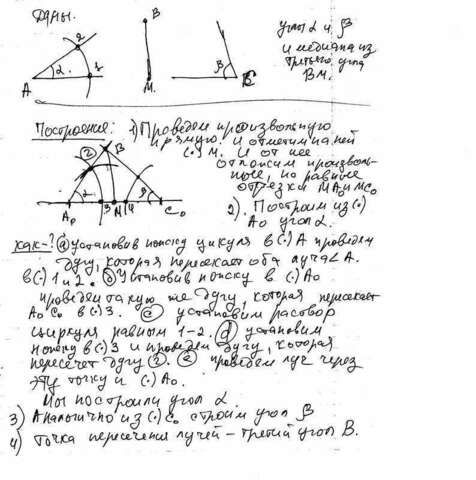 Даны.
B
2
α 1
A
M.
β
C
углы α и β
и медиана из
третьего угла
BM.
Построение: 1) Проведем произвольную
прямую и отметим на ней
(·) M. и от нее
отложим произволь-
ные, но равные
отрезки MA₀ и MC₀
2). Построим из (·)
A₀ угол α.
B
2
α β
A₀ 3 M 4 C₀
как-? ⓐ установив ножку циркуля в (·) A проведем
дугу, которая пересекает оба луча ∠A.
в (·) 1 и 2. ⓑ Установив ножку в (·) A₀
проведем такую же дугу, которая пересекает
A₀C₀ в (·) 3. ⓒ установим раствор
циркуля равным 1-2. ⓓ установим
ножку в (·) 3 и проведем дугу, которая
пересечет дугу ②. ⓔ проведем луч через
эту точку и (·) A₀.
Мы построили угол α.
3) Аналогично из (·) C₀ строим угол β
4) Точка пересечения лучей – третий угол B.